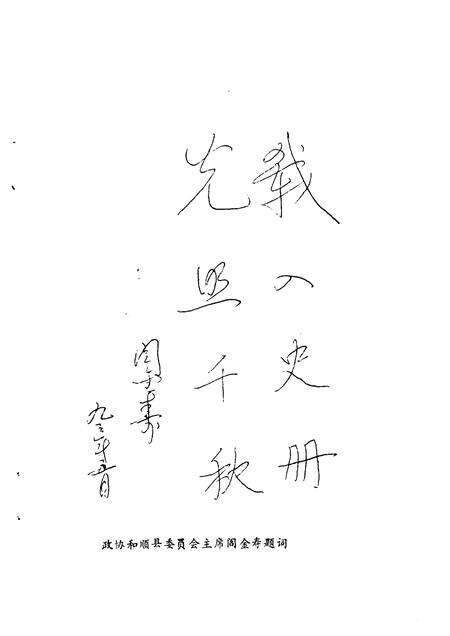 载入史册
光照千秋
阎金寿
九三年五月
政协和顺县委员会主席阎金寿题词